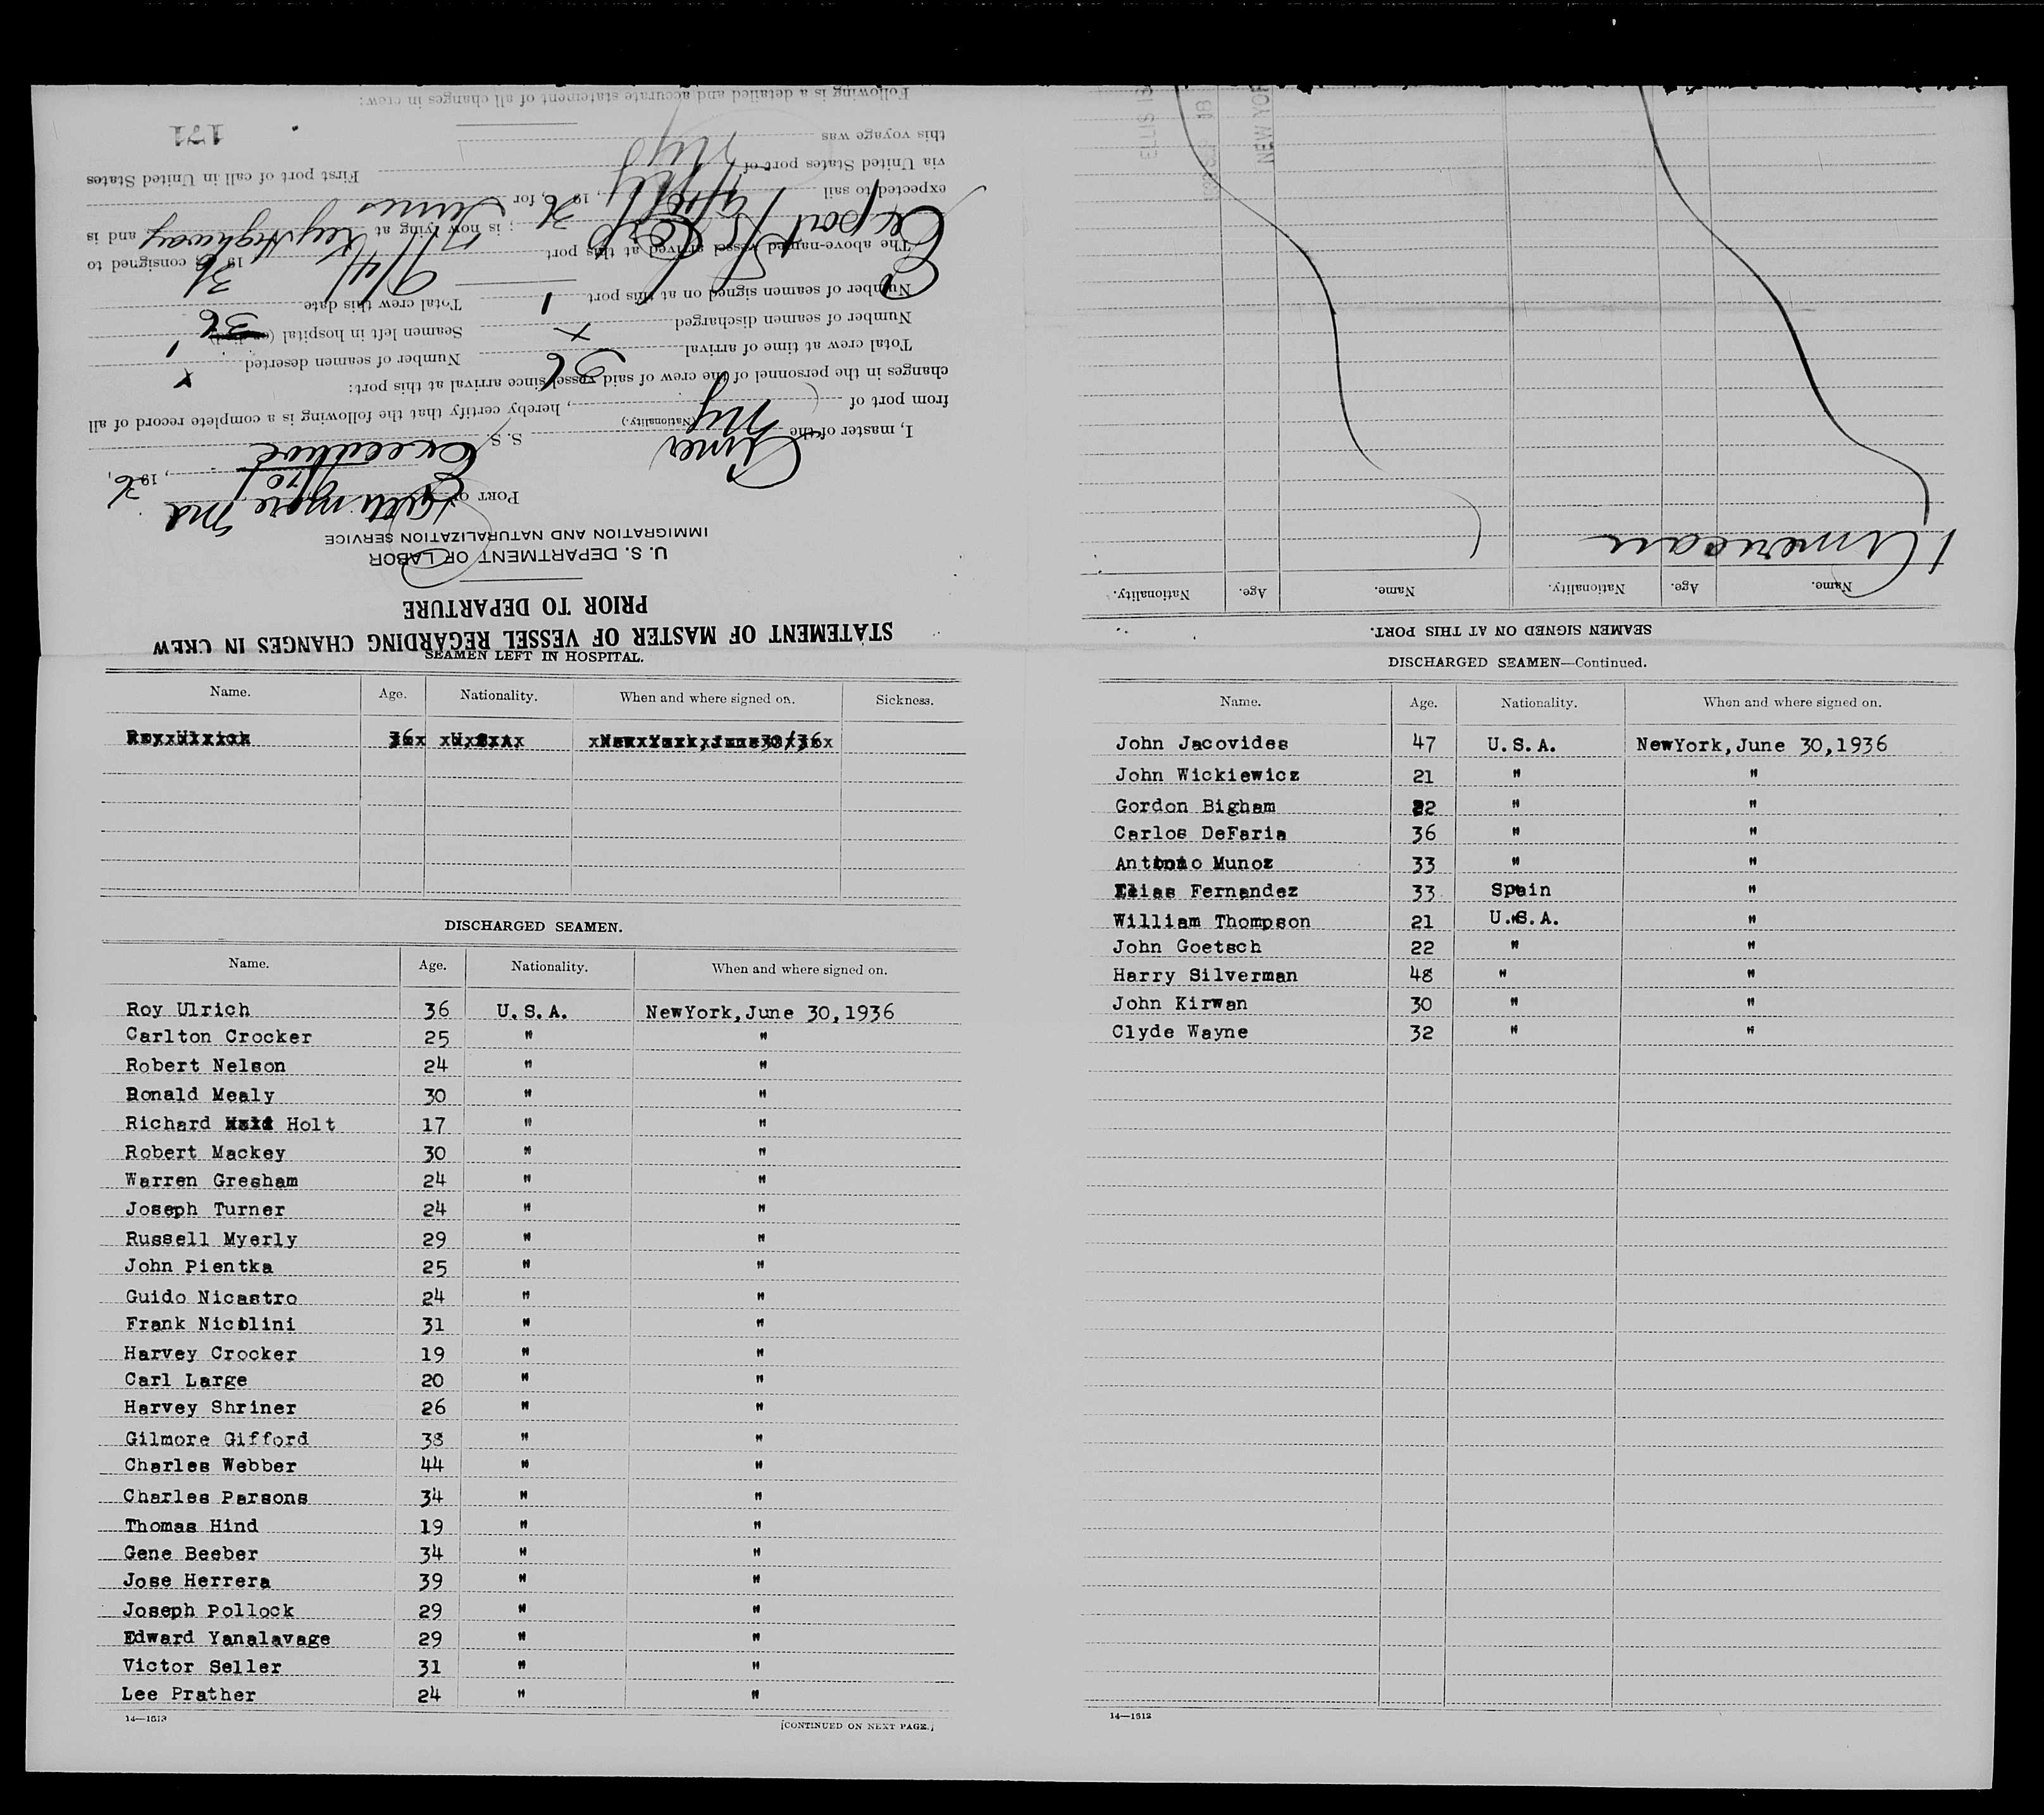 STATEMENT OF MASTER OF VESSEL REGARDING CHANGES IN CREW
PRIOR TO DEPARTURE
U. S. DEPARTMENT OF LABOR
IMMIGRATION AND NATURALIZATION SERVICE
PORT OF Baltimore Md
9/10, 1936,
I, master of the Amer (Nationality.) S. S. Executive
from port of NY, hereby certify that the following is a complete record of all
changes in the personnel of the crew of said vessel since arrival at this port:
Total crew at time of arrival 36 Number of seamen deserted x
Number of seamen discharged x Seamen left in hospital 1
Number of seamen signed on at this port 1 Total crew this date 36
The above-named vessel arrived at this port 9/4/ 1936, consigned to
Export SS Corp; is now lying at Key Highway and is
expected to sail 9/10/, 1936, for Tunes
via United States port of NY First port of call in United States
this voyage was
171
Following is a detailed and accurate statement of all changes in crew:
SEAMEN LEFT IN HOSPITAL.
Name. Age. Nationality. When and where signed on. Sickness.
DISCHARGED SEAMEN.
Name. Age. Nationality. When and where signed on.
Roy Ulrich 36 U.S.A. NewYork,June 30,1936
Carlton Crocker 25 " "
Robert Nelson 24 " "
Ronald Mealy 30 " "
Richard Holt 17 " "
Robert Mackey 30 " "
Warren Gresham 24 " "
Joseph Turner 24 " "
Russell Myerly 29 " "
John Pientka 25 " "
Guido Nicastro 24 " "
Frank Nicolini 31 " "
Harvey Crocker 19 " "
Carl Large 20 " "
Harvey Shriner 26 " "
Gilmore Gifford 38 " "
Charles Webber 44 " "
Charles Parsons 34 " "
Thomas Hind 19 " "
Gene Beeber 34 " "
Jose Herrera 39 " "
Joseph Pollock 29 " "
Edward Yanalavage 29 " "
Victor Seller 31 " "
Lee Prather 24 " "
14—1513
[CONTINUED ON NEXT PAGE.]
SEAMEN SIGNED ON AT THIS PORT.
Name. Age. Nationality. Name. Age. Nationality.
1 American
ELLIS IS
18
NEW YOR
DISCHARGED SEAMEN—Continued.
Name. Age. Nationality. When and where signed on.
John Jacovides 47 U.S.A. NewYork,June 30,1936
John Wickiewicz 21 " "
Gordon Bigham 22 " "
Carlos DeFaria 36 " "
Antonio Munoz 33 " "
Elias Fernandez 33 Spain "
William Thompson 21 U.S.A. "
John Goetsch 22 " "
Harry Silverman 48 " "
John Kirwan 30 " "
Clyde Wayne 32 " "
14—1512